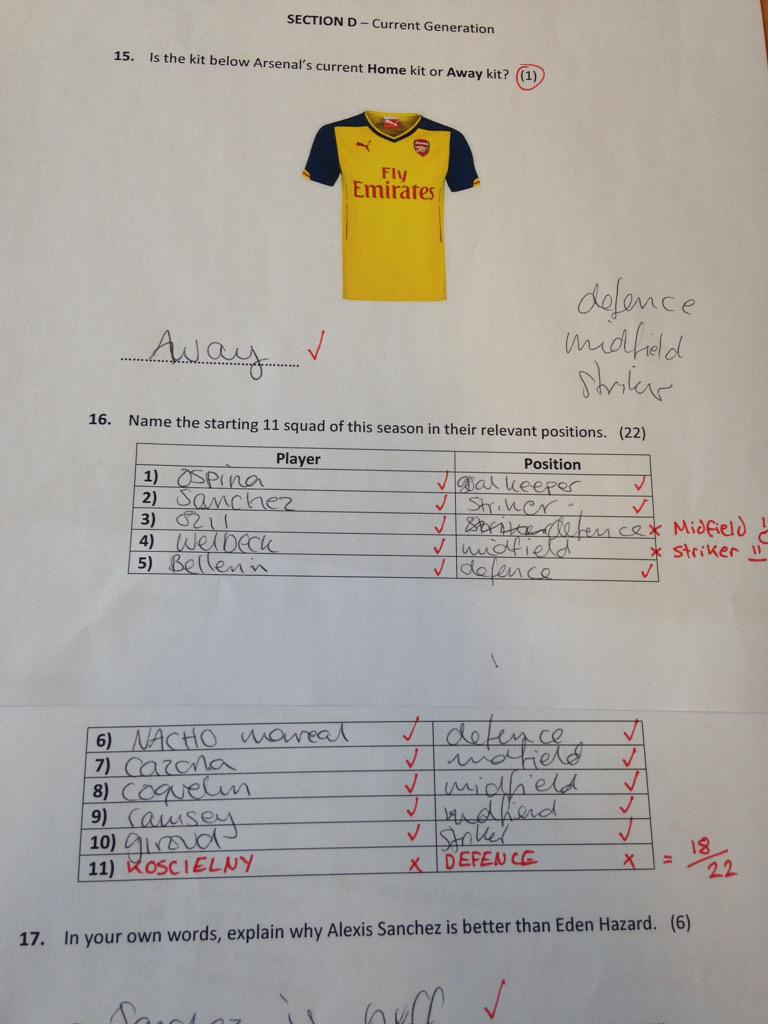 SECTION D – Current Generation
15. Is the kit below Arsenal's current Home kit or Away kit? (1)
Fly
Emirates
defence
midfield
striker
Away ✓
16. Name the starting 11 squad of this season in their relevant positions. (22)
Player Position
1) Ospina ✓ goalkeeper ✓
2) Sanchez ✓ striker ✓
3) Ozil ✓ defence x Midfield !!
4) Welbeck ✓ midfield x striker !!
5) Bellerin ✓ defence ✓
6) NACHO monreal ✓ defence ✓
7) cazorla ✓ midfield ✓
8) coquelin ✓ midfield ✓
9) ramsey ✓ midfield ✓
10) giroud ✓ striker ✓
11) KOSCIELNY x DEFENCE x = 18/22
17. In your own words, explain why Alexis Sanchez is better than Eden Hazard. (6)
Sanchez is buff ✓